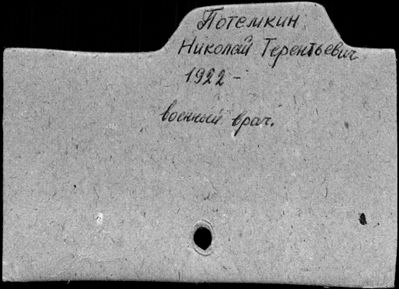 Потемкин
Николай Терентьевич
1922 -
военный врач.